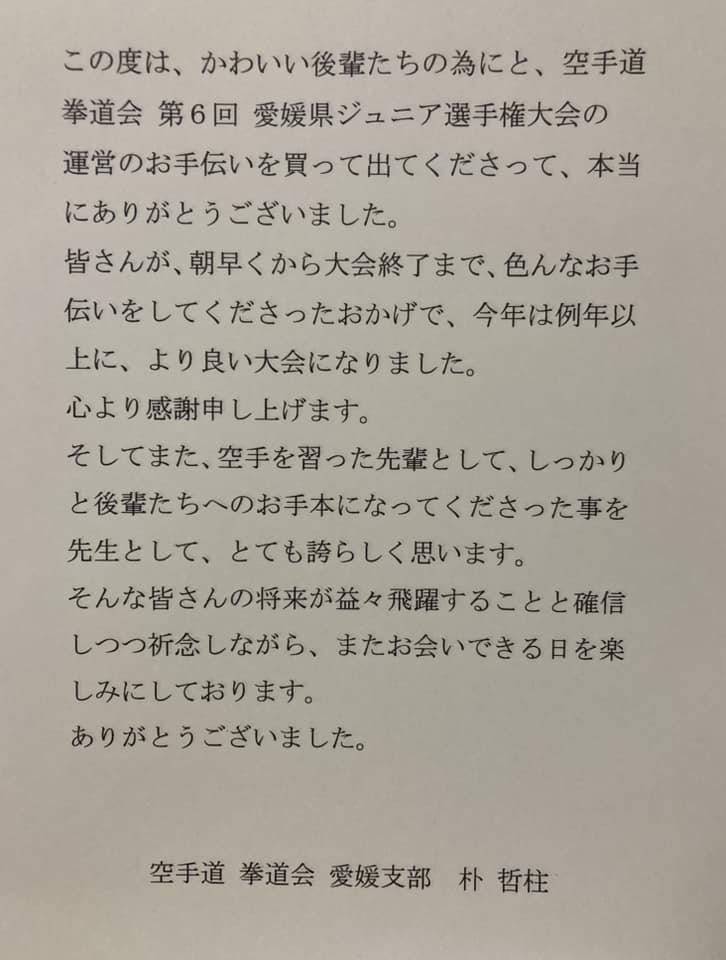 この度は、かわいい後輩たちの為にと、空手道
拳道会 第６回 愛媛県ジュニア選手権大会の
運営のお手伝いを買って出てくださって、本当
にありがとうございました。
皆さんが、朝早くから大会終了まで、色んなお手
伝いをしてくださったおかげで、今年は例年以
上に、より良い大会になりました。
心より感謝申し上げます。
そしてまた、空手を習った先輩として、しっかり
と後輩たちへのお手本になってくださった事を
先生として、とても誇らしく思います。
そんな皆さんの将来が益々飛躍することと確信
しつつ祈念しながら、またお会いできる日を楽
しみにしております。
ありがとうございました。
空手道 拳道会 愛媛支部　朴 哲柱